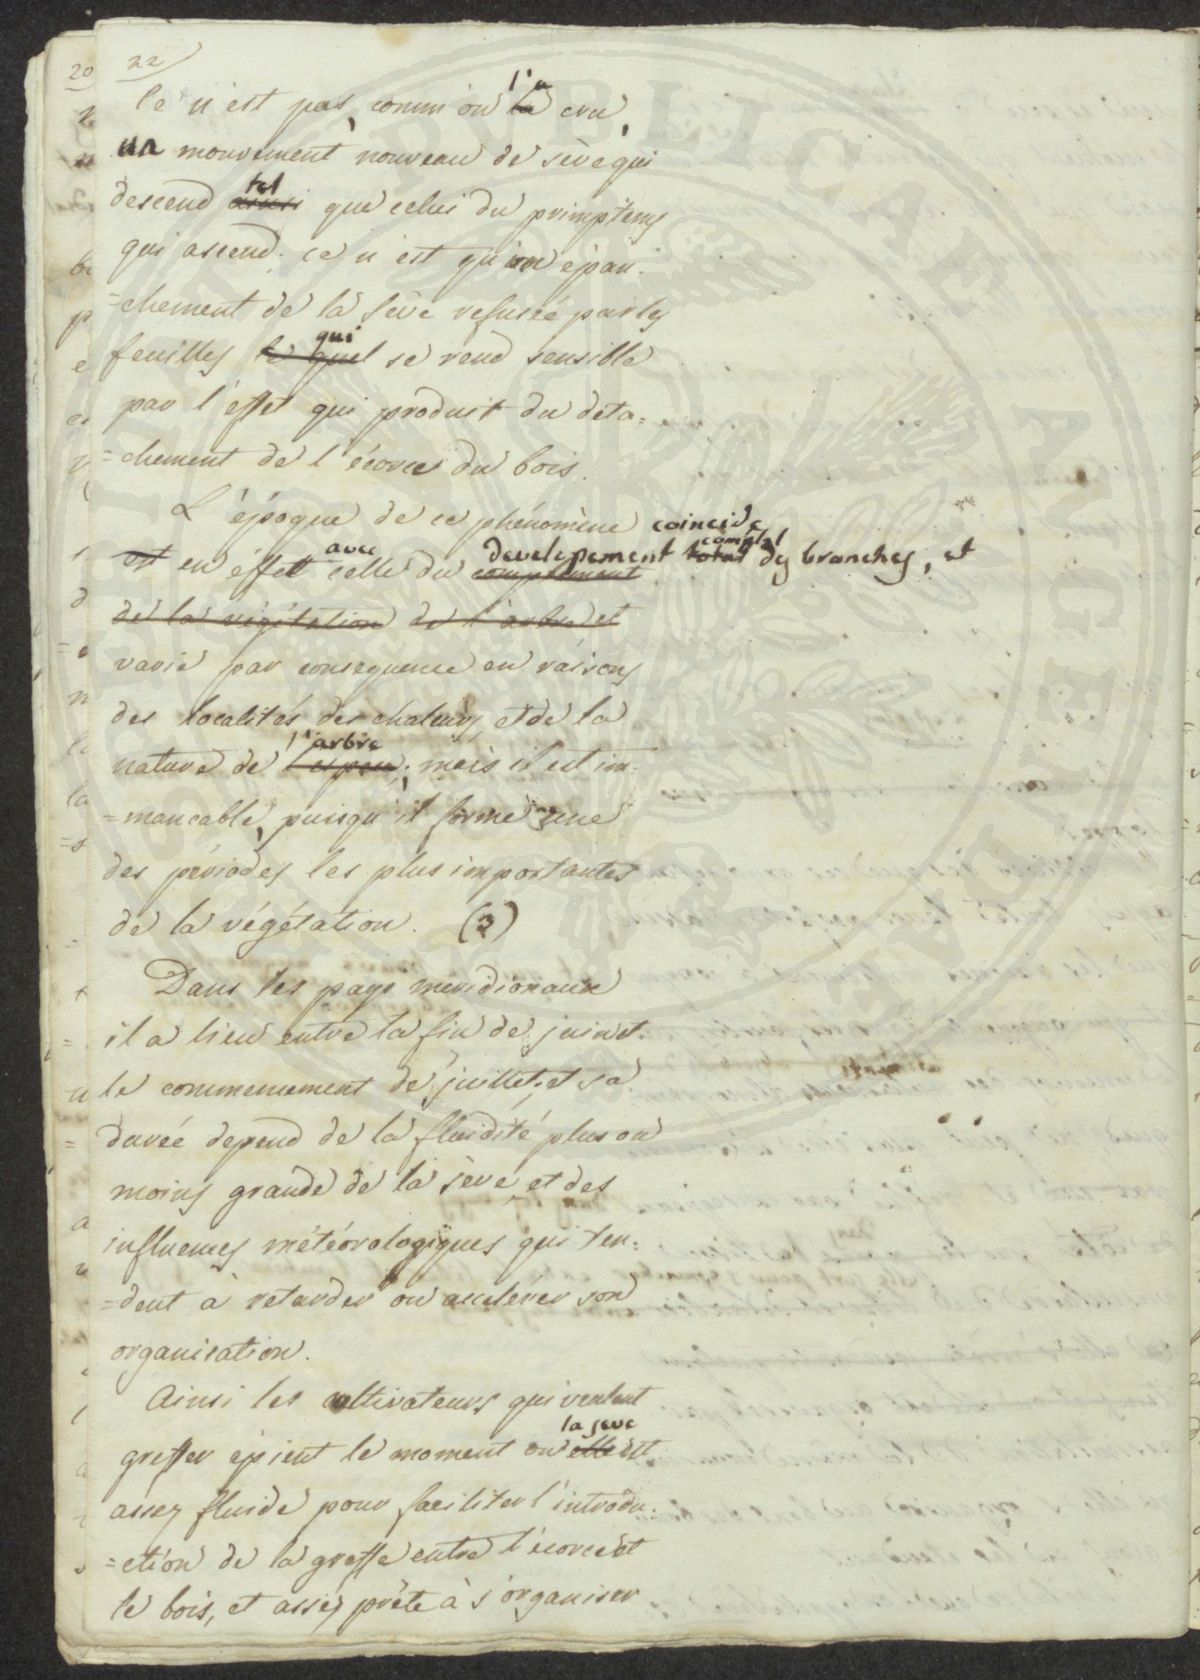 20 22
Ce n'est pas, comm'on l'a la cru,
un mouvement nouveau de sève qui
descend tel ainsi que celui du primptems
qui ascend. ce n'est qu'un épan-
=chement de la sève refusée par les
feuilles qui le quel se rend sensible
par l'effet qui produit du deta=
=chement de l'écorce du bois.
L'époque de ce phénomène coincide
est en éffet avec celle du developement complement complet total des branches, et
de la végétation de l'arbre et
varie par consequence en raisons
des localités des chaleurs, et de la
nature de l'arbre l'espece; mais il est im-
=mancable, puisqu'il forme une
des périodes les plus importantes
de la végétation. (2)
Dans les pays meridionaux
il a lieu entre la fin de juin et
le commencement de juillet, et sa
durée depend de la fluidité plus ou
moins grande de la sève, et des
influences météorologiques qui ten=
=dent à retarder ou accelérer son
organisation.
Ainsi les cultivateurs qui veulent
greffer épient le moment ou la seve elle est
assez fluide pour faciliter l'introdu=
=ction de la greffe entre l'écorce et
le bois, et assez prête à s'organiser